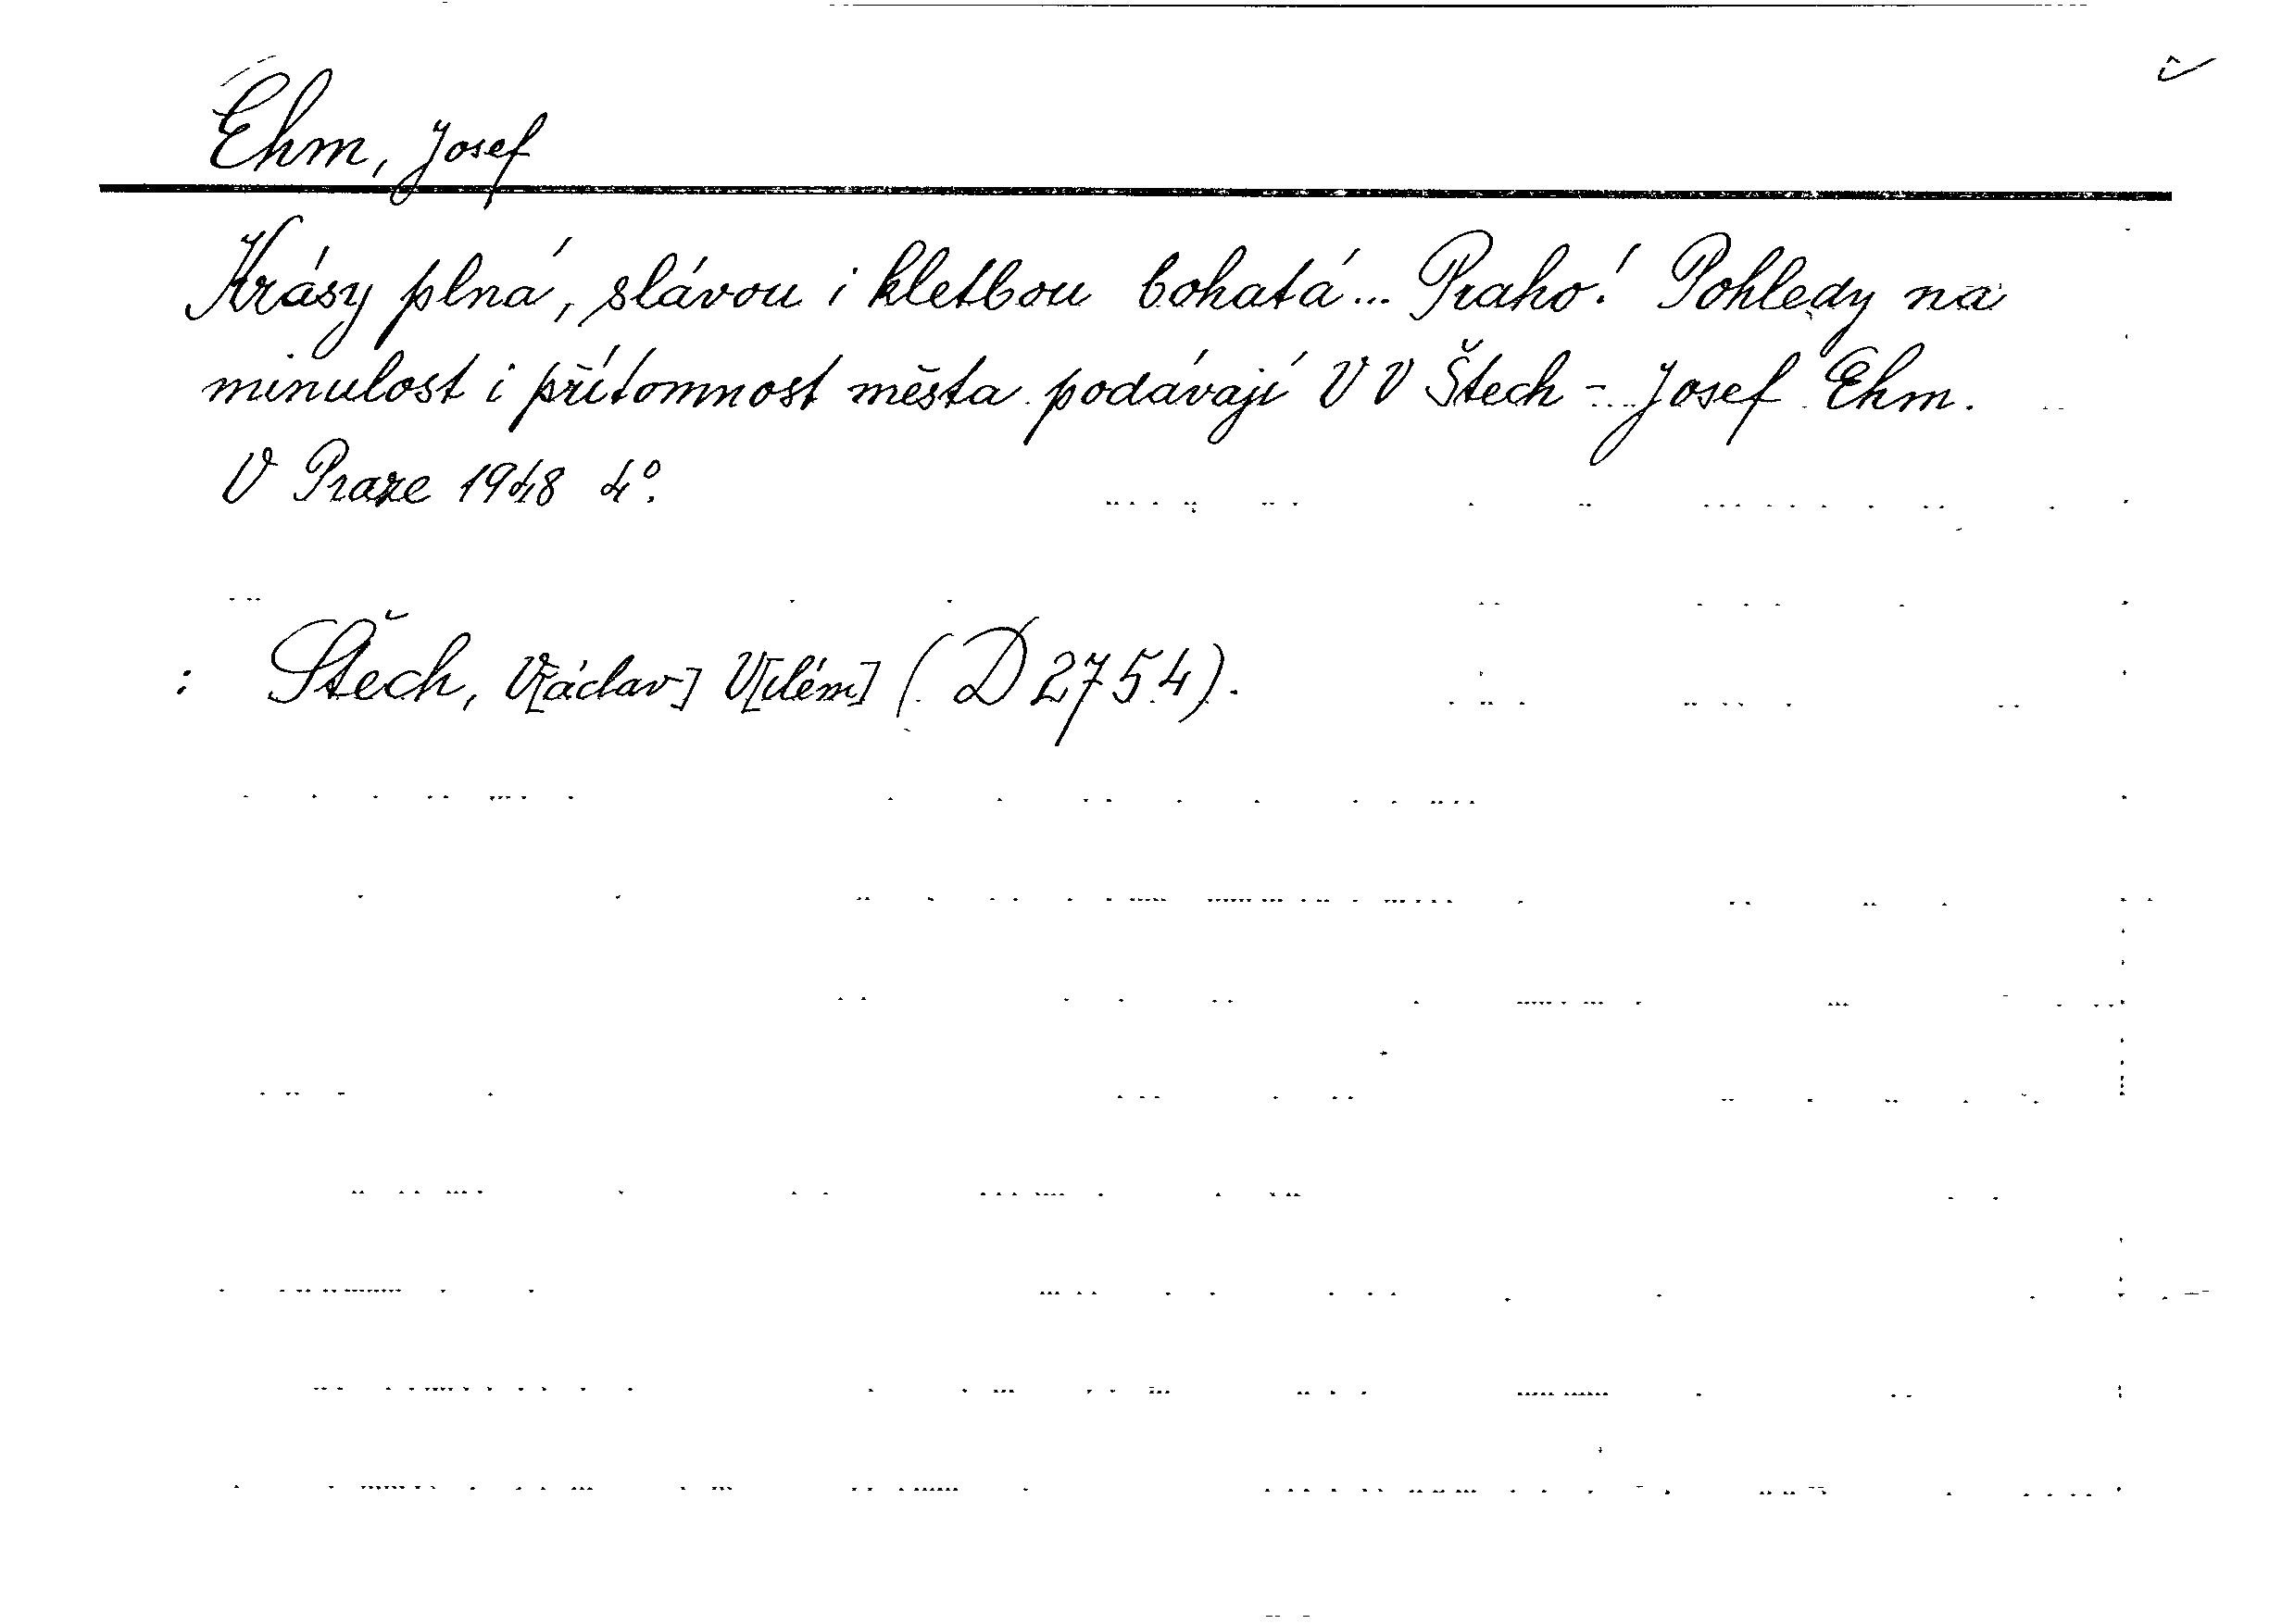 Ehm, Josef
Krásy plná, slávou i kletbou bohatá... Praho! Pohledy na
minulost i přítomnost města podávají V V Štech - Josef Ehm.
V Praze 1948 4°.
: Štech, V[áclav] V[ilém] (D 2754).